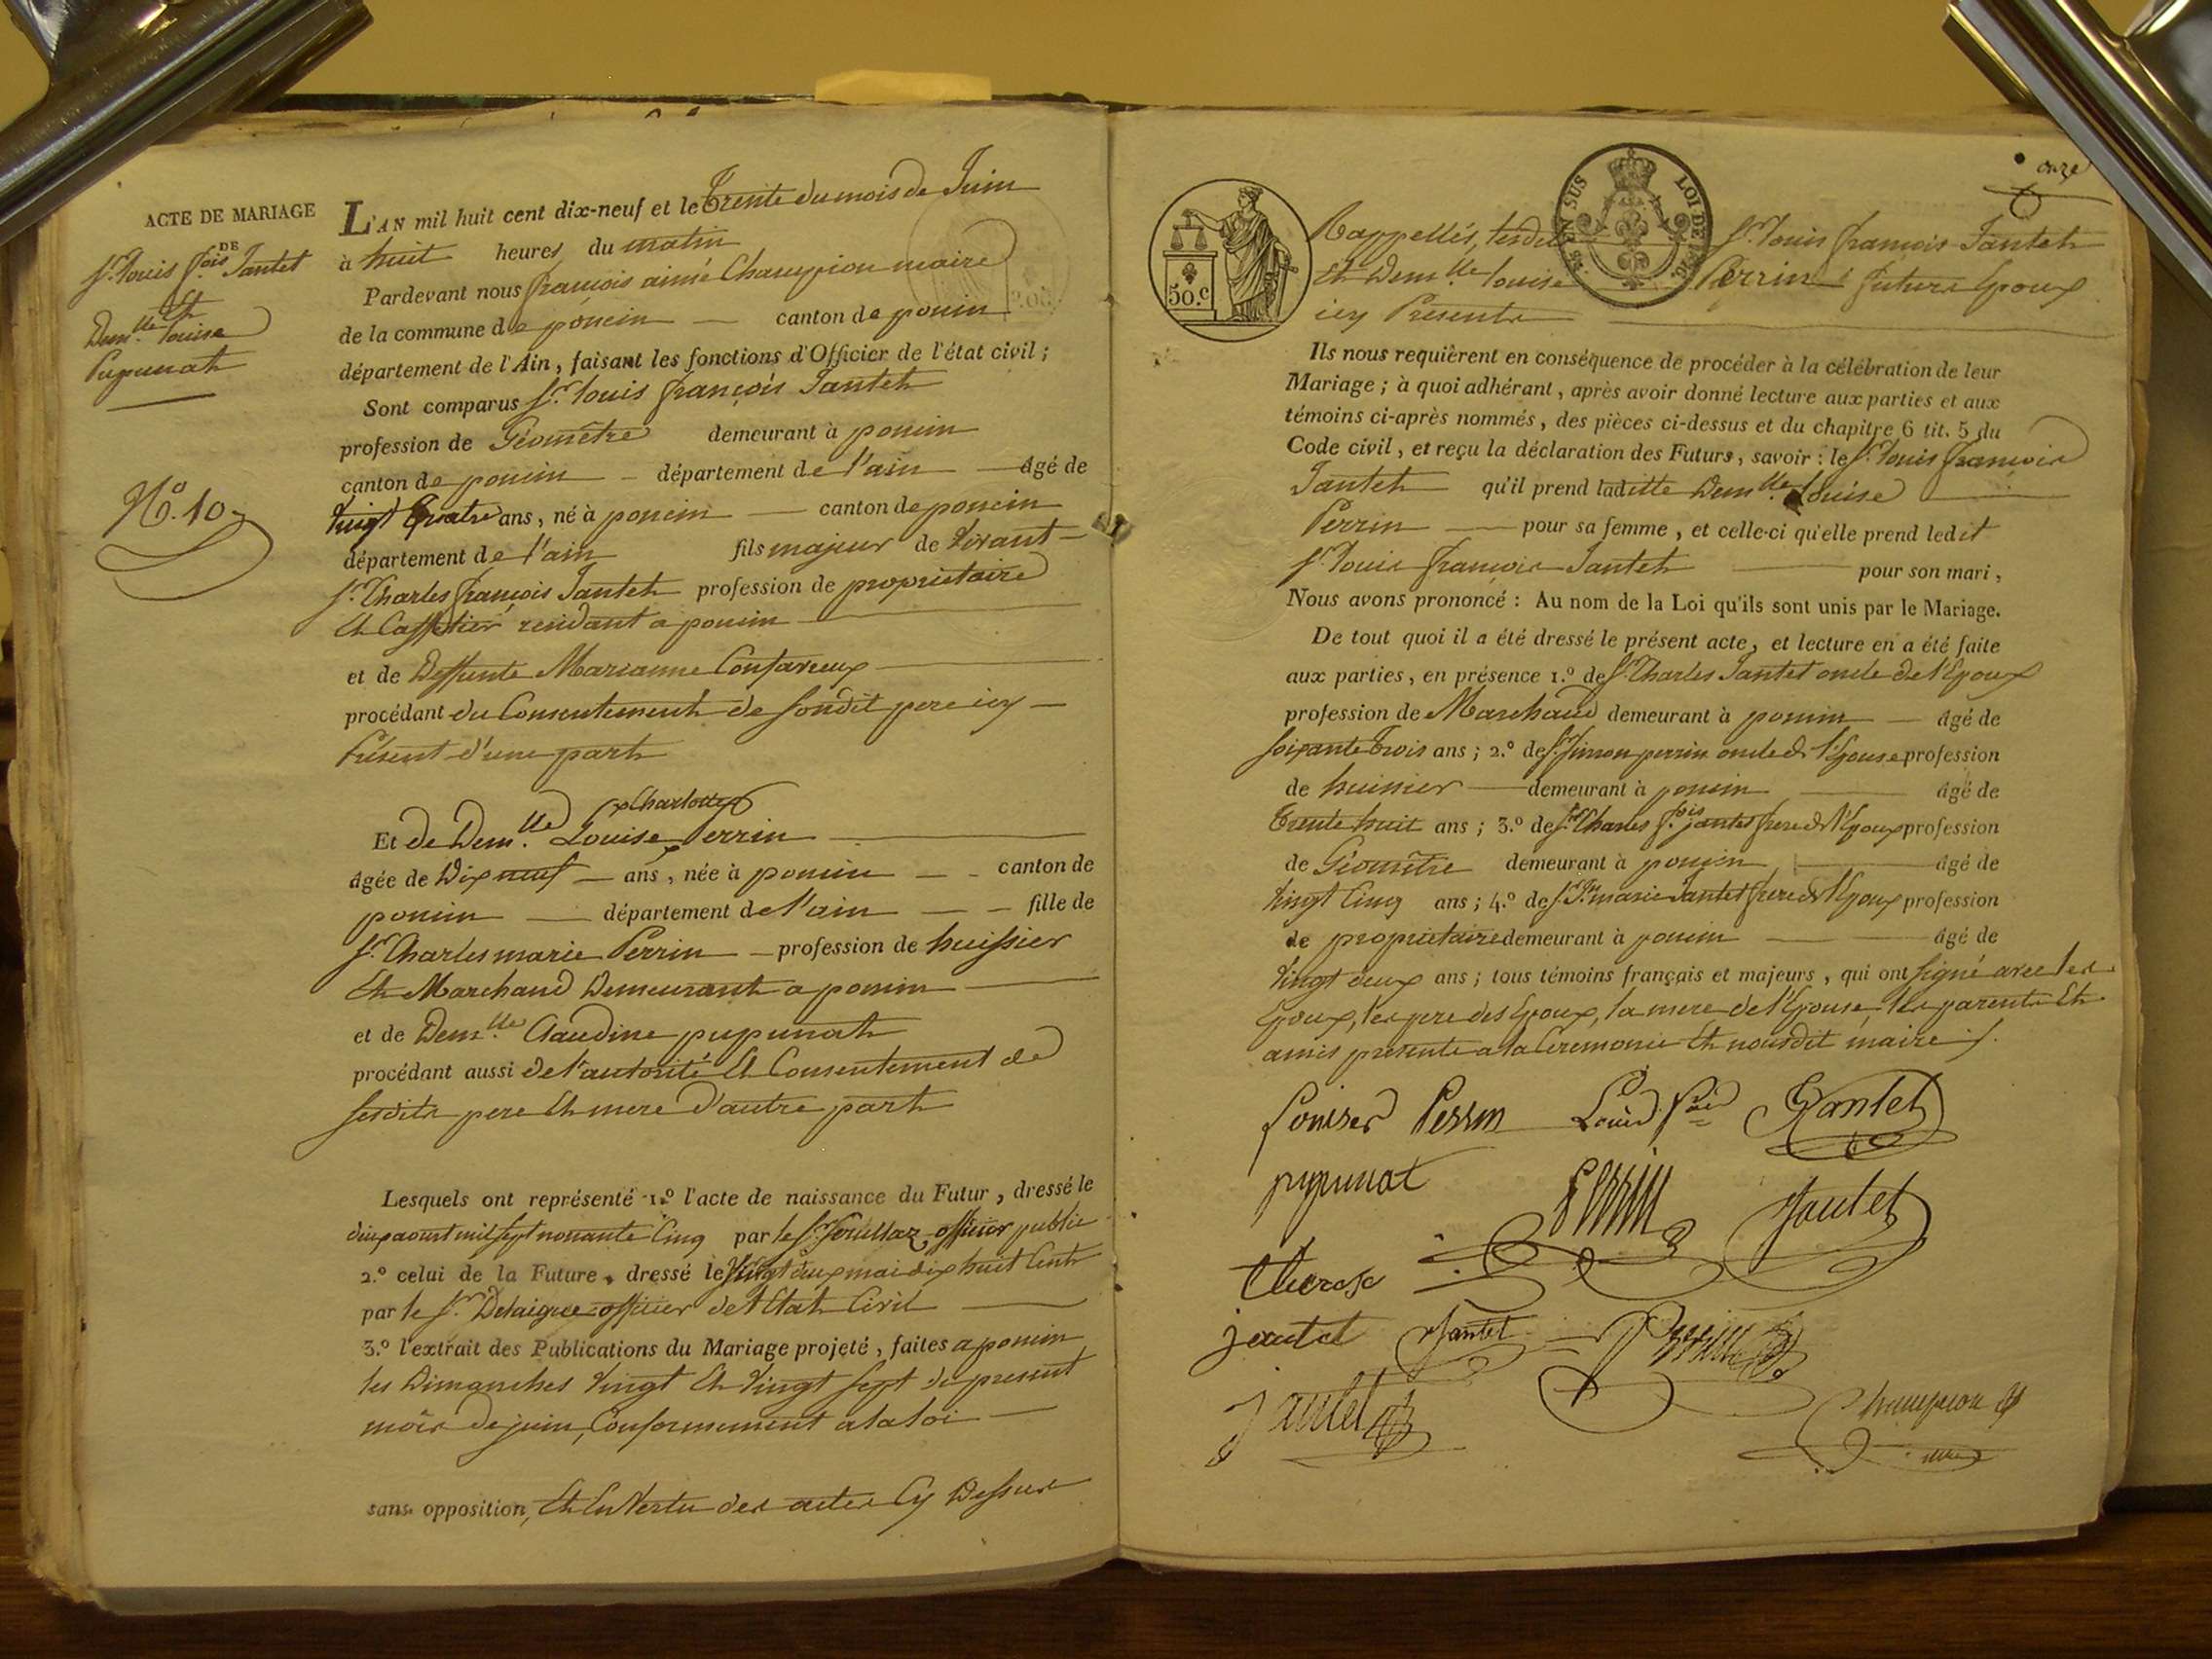 ACTE DE MARIAGE
DE
Sr. Louis fois Jantet
Et
Demlle Louise
Pupunat
No. 10
L'AN mil huit cent dix-neuf et le Trente du mois de Juin
à huit heures du matin
Pardevant nous françois aimé Champion maire
de la commune de poncin canton de poncin
département de l'Ain, faisant les fonctions d'Officier de l'état civil ;
Sont comparus Sr. Louis françois Jantet
profession de Géomêtre demeurant à poncin
canton de poncin département de l'ain âgé de
Vingt Quatre ans, né à poncin canton de poncin
département de l'ain fils majeur de vivant
Sr. Charles françois Jantet profession de propriétaire
Et Caffetier résidant a poncin
et de Deffunte Marianne Confavreux
procédant du Consentement de Sondit pere icy
Présent d'une part
Charlotte
Et de Demlle Louise Perrin
âgée de Dix neuf ans, née à poncin canton de
poncin département de l'ain fille de
Sr. Charles marie Perrin profession de huissier
Et Marchand Demeurant a poncin
et de Demlle Claudine pupunat
procédant aussi de l'autorité Et Consentement de
Sesdits pere Et mere d'autre part
Lesquels ont représenté 1.º l'acte de naissance du Futur, dressé le
deux aoust mil sept nonante Cinq par le Sr. officier public
2.º celui de la Future, dressé le Vingt deux mai dix huit Cent
par le Sr. Delaigue officier de l'Etat Civil
3.º l'extrait des Publications du Mariage projeté, faites a poncin
les Dimanches Vingt Et Vingt Sept du present
mois de juin, Conformement a la loi
sans opposition, Et En Vertu des actes Cy Dessus
onze
50.c
Rappellés, lesdits Sr. Louis françois Jantet
Et Demlle Louise Perrin futurs Epoux
icy Presents
Ils nous requièrent en conséquence de procéder à la célébration de leur
Mariage ; à quoi adhérant, après avoir donné lecture aux parties et aux
témoins ci-après nommés, des pièces ci-dessus et du chapitre 6 tit. 5 du
Code civil, et reçu la déclaration des Futurs, savoir : le Sr. Louis françois
Jantet qu'il prend laditte Demlle Louise
Perrin pour sa femme, et celle-ci qu'elle prend ledit
Sr. Louis françois Jantet pour son mari,
Nous avons prononcé : Au nom de la Loi qu'ils sont unis par le Mariage.
De tout quoi il a été dressé le présent acte, et lecture en a été faite
aux parties, en présence 1.º de Sr. Charles Jantet oncle de l'Epoux
profession de Marchand demeurant à poncin âgé de
Soixante Trois ans ; 2.º de Sr. Simon perrin oncle de l'Epouse profession
de huissier demeurant à poncin âgé de
Trente huit ans ; 3.º de Sr. Charles fois jantet frere de l'Epoux profession
de Géomêtre demeurant à poncin âgé de
Vingt Cinq ans ; 4.º de Sr. Jn marie Jantet frere de l'Epoux profession
de propriétaire demeurant à poncin âgé de
Vingt deux ans ; tous témoins français et majeurs, qui ont Signé avec les
Epoux, les pere des Epoux, la mere de l'Epouse, les parents Et
amis presents a la Ceremonie Et nousdit maire
Louise Perrin Louis fois Jantet
pupunat Perrin Jantet
therese
jantet Jantet Perrin
Jantet Champion